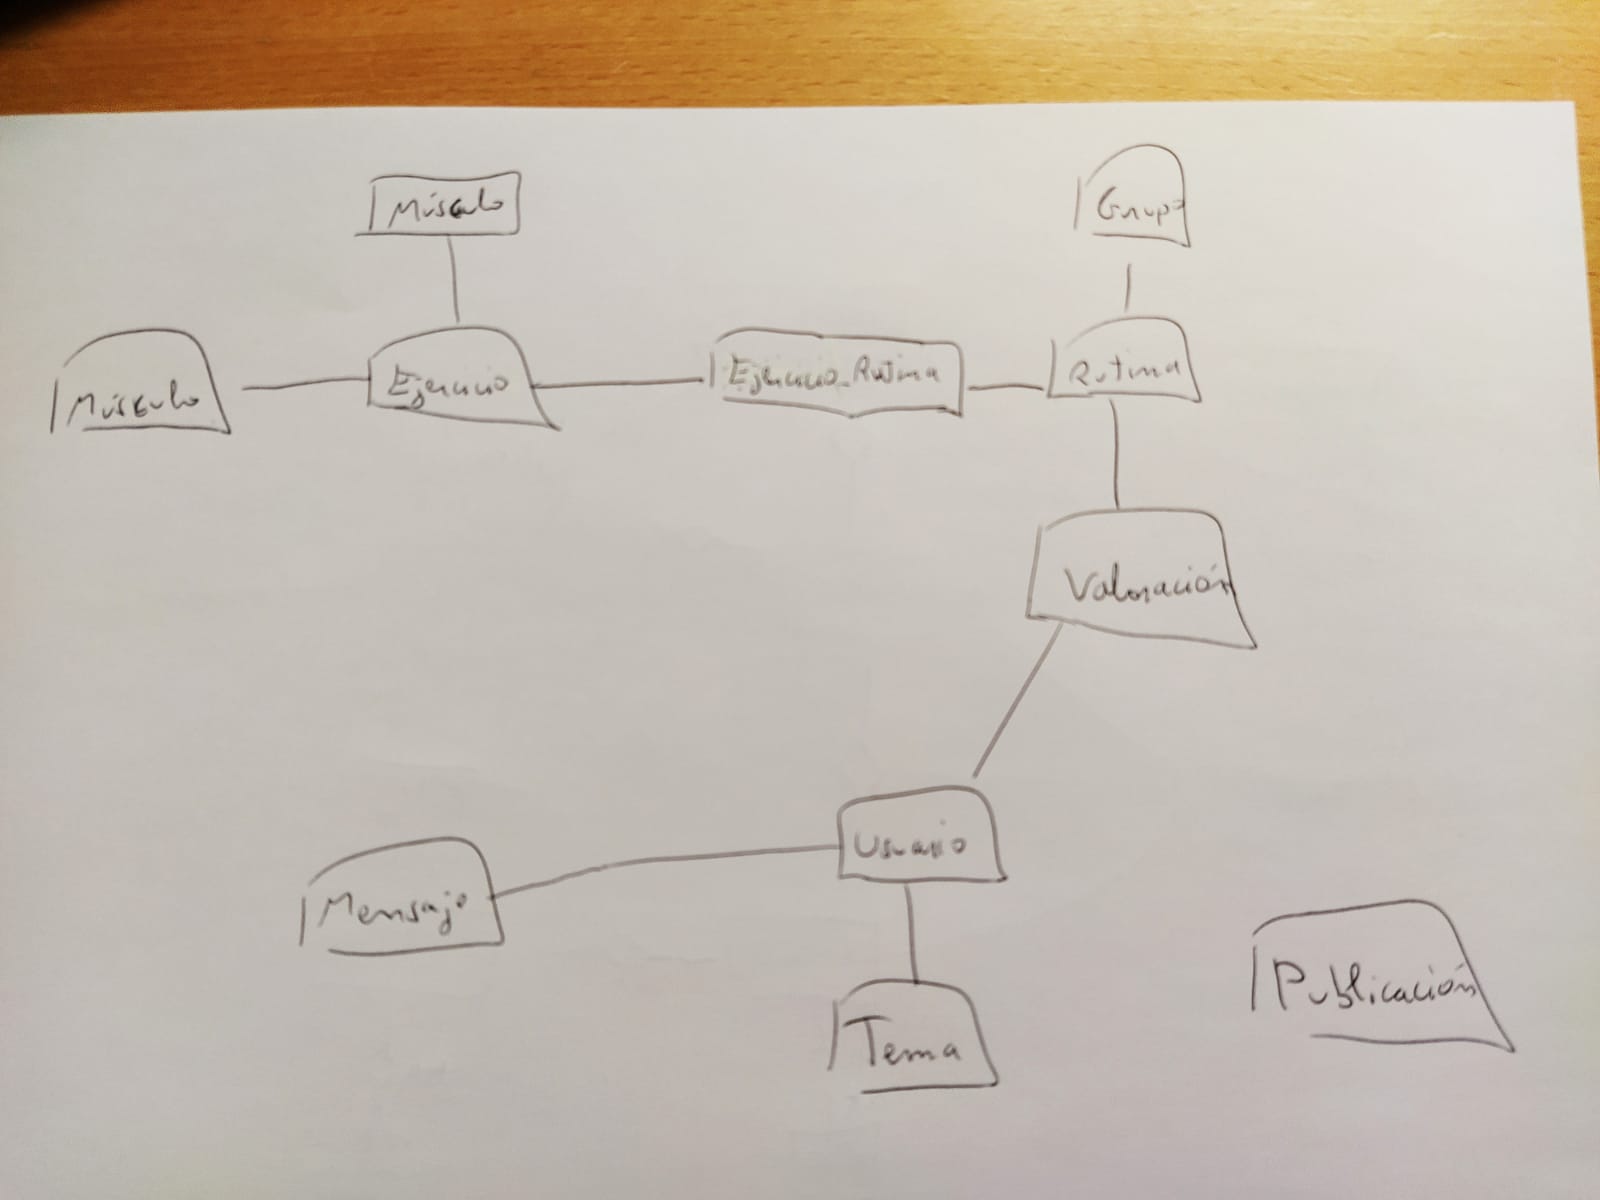 Músculo
Grupo
Músculo
Ejercicio
Ejercicio_Rutina
Rutina
Valoración
Usuario
Mensaje
Publicación
Tema